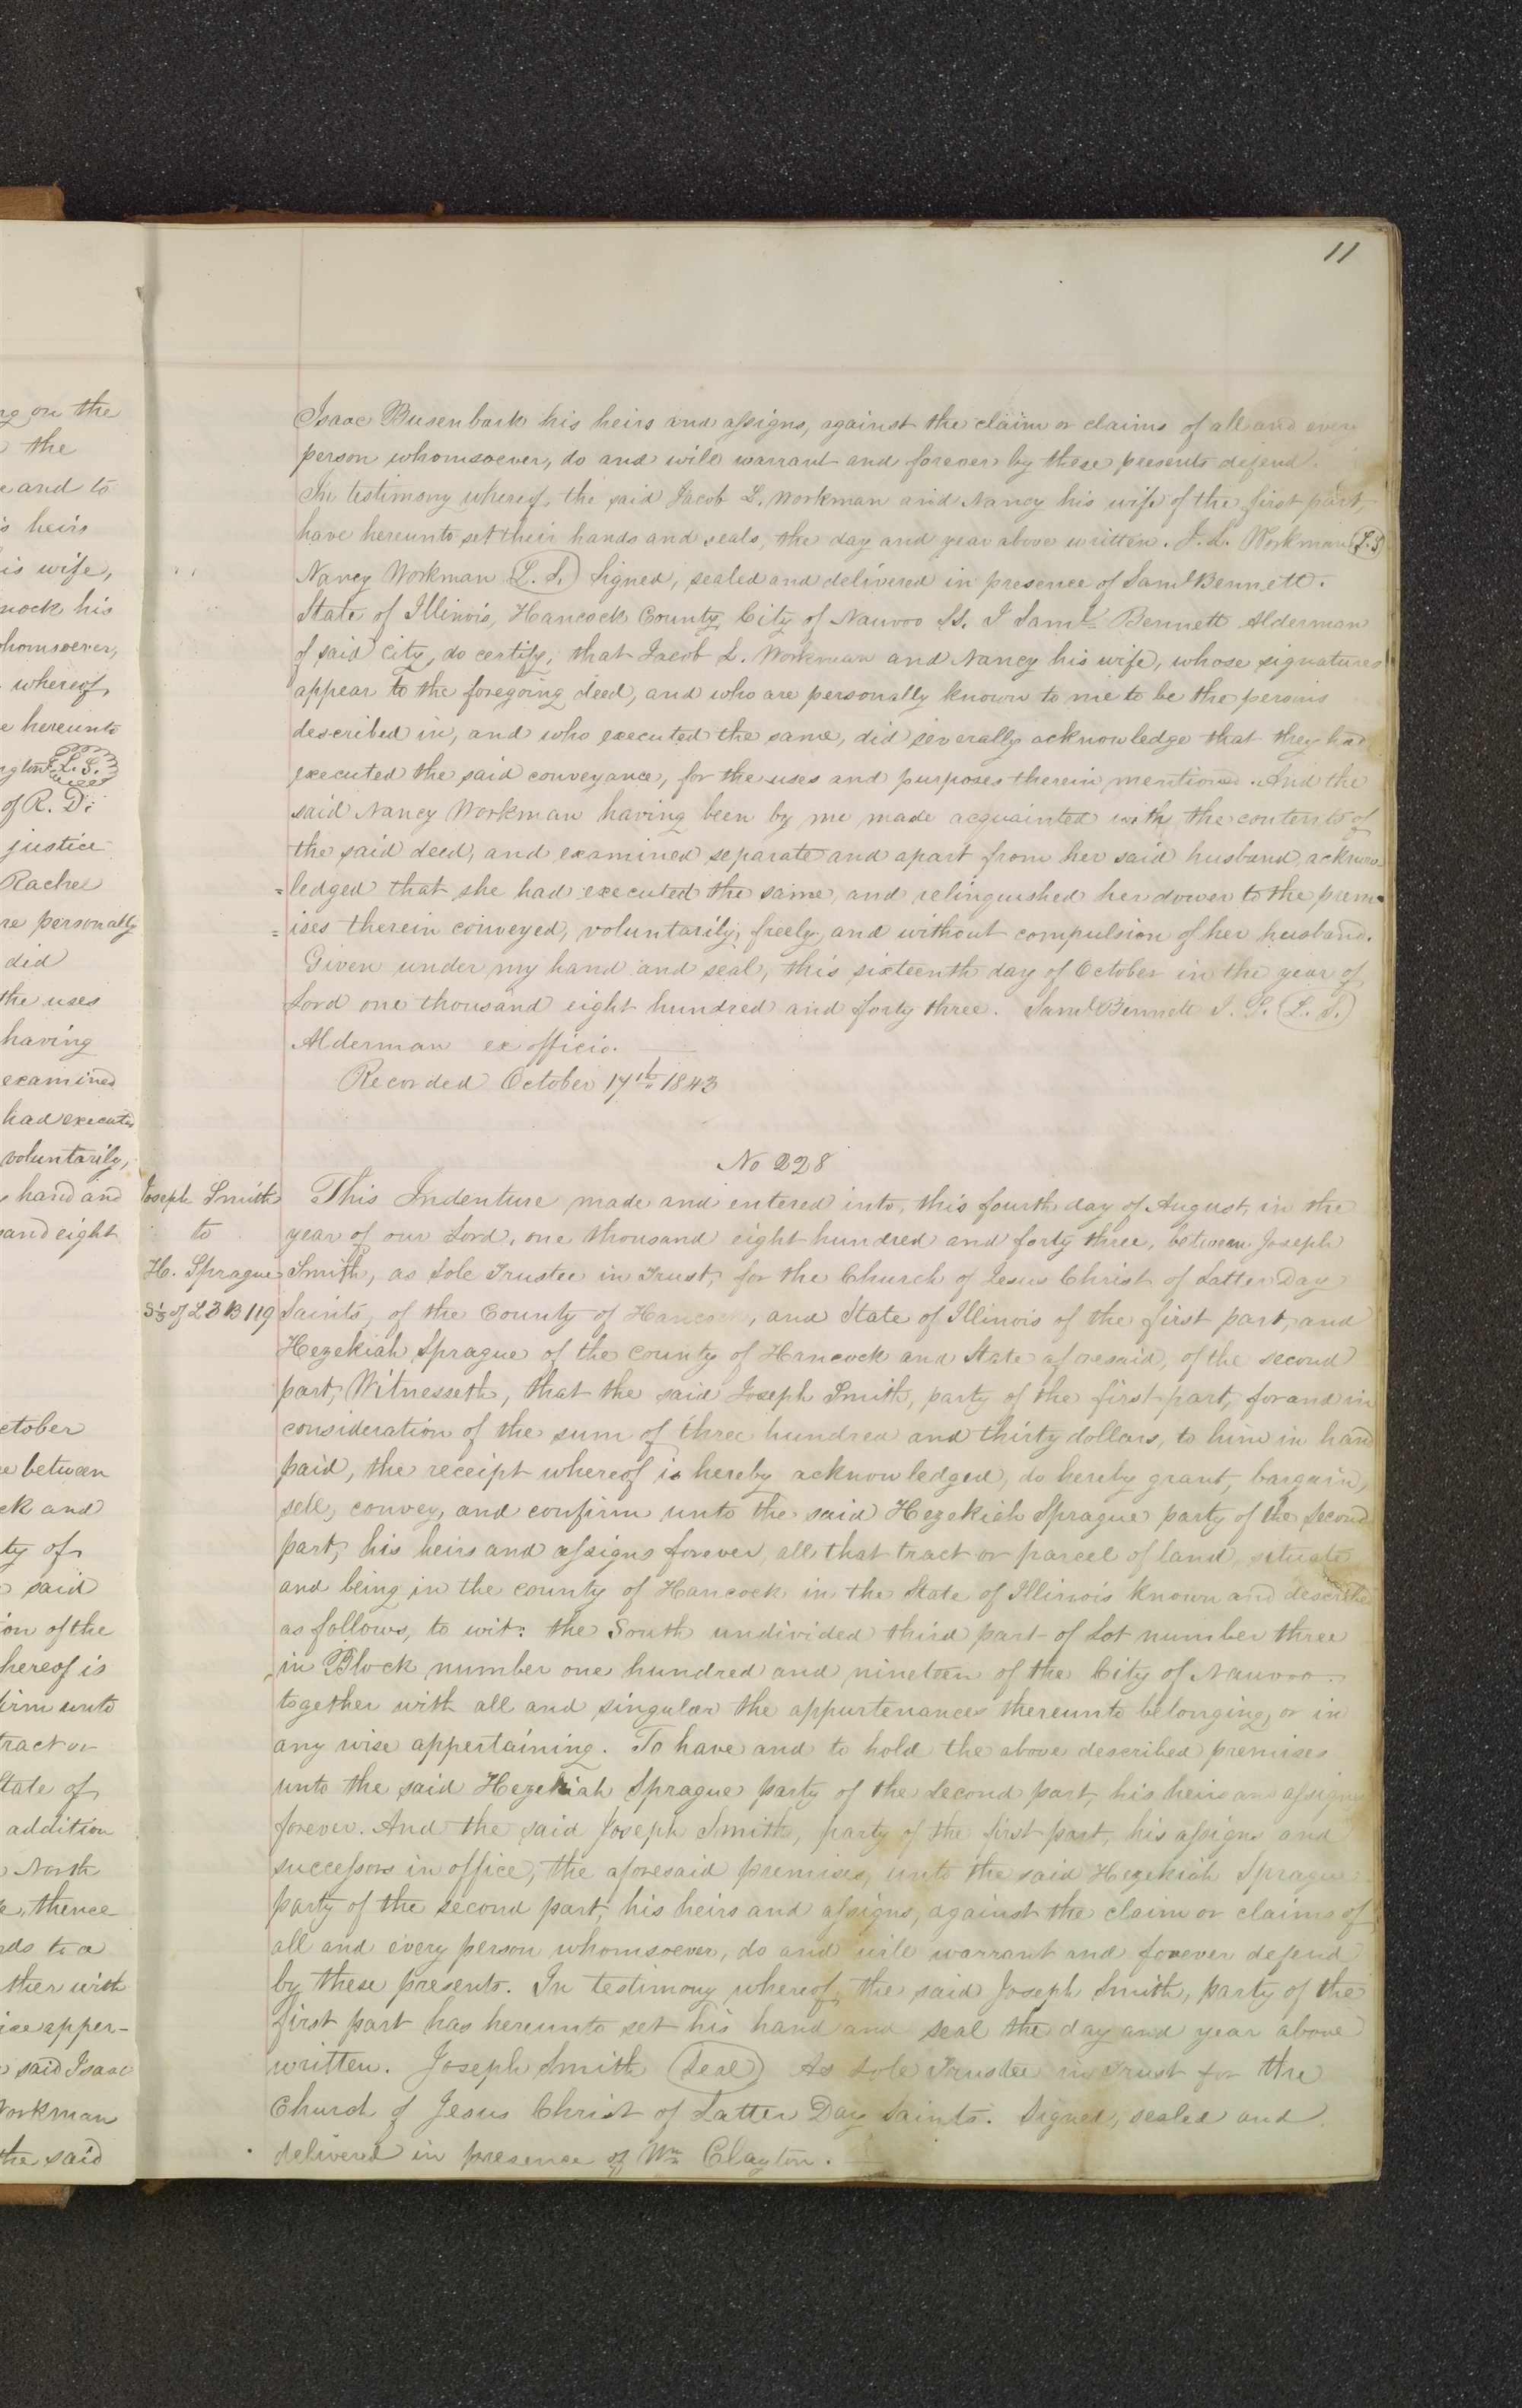 11
ng on the
the
e and to
s heirs
is wife,
nock his
whomsoever,
whereof,
e hereunto
ngton L. S.
of R. D.
justice
Rachel
re personally
did
the uses
having
examined
had executed
voluntarily,
hand and
sand eight
ctober
e between
ck and
ty of
said
ion of the
hereof is
firm unto
tract or
State of
addition
North
e, thence
rds to a
ther with
ise apper-
said Isaac
Workman
the said
Isaac Busenbark his heirs and assigns, against the claim or claims of all and every
person whomsoever, do and will warrant and forever by these presents defend.
In testimony whereof, the said Jacob L. Workman and Nancy his wife of the first part,
have hereunto set their hands and seals, the day and year above written. J. L. Workman L. S.
Nancy Workman (L. S.) Signed, sealed and delivered in presence of Saml Bennett.
State of Illinois, Hancock County, City of Nauvoo SS. I Saml. Bennett Alderman
of said City, do certify, that Jacob L. Workman and Nancy his wife, whose signatures
appear to the foregoing deed, and who are personally known to me to be the persons
described in, and who executed the same, did severally acknowledge that they had
executed the said conveyance, for the uses and purposes therein mentioned. And the
said Nancy Workman having been by me made acquainted with the contents of
the said deed, and examined separate and apart from her said husband, acknow-
=ledged that she had executed the same, and relinquished her dower to the prem-
=ises therein conveyed, voluntarily, freely, and without compulsion of her husband.
Given under my hand and seal, this sixteenth day of October in the year of
Lord one thousand eight hundred and forty three. Saml Bennett J. P. (L. S.)
Alderman ex officio.
Recorded October 17th 1843
No 228
Joseph Smith
to
H. Sprague
S 1/3 of L 3 B 119
This Indenture made and entered into, this fourth day of August, in the
year of our Lord, one thousand eight hundred and forty three, between Joseph
Smith, as Sole Trustee in Trust, for the Church of Jesus Christ of Latter Day
Saints, of the County of Hancock, and State of Illinois of the first part, and
Hezekiah Sprague of the County of Hancock and State aforesaid, of the second
part, Witnesseth, that the said Joseph Smith, party of the first part, for and in
consideration of the sum of three hundred and thirty dollars, to him in hand
paid, the receipt whereof is hereby acknowledged, do hereby grant, bargain,
sell, convey, and confirm unto the said Hezekiah Sprague party of the Second
part, his heirs and assigns forever, all that tract or parcel of land, situate
and being in the county of Hancock in the State of Illinois known and described
as follows, to wit: the South undivided third part of Lot number three
in Block number one hundred and nineteen of the City of Nauvoo.
together with all and singular the appurtenances thereunto belonging, or in
any wise appertaining. To have and to hold the above described premises
unto the said Hezekiah Sprague party of the Second part, his heirs and assigns
forever. And the said Joseph Smith, party of the first part, his assigns and
successors in office, the aforesaid premises, unto the said Hezekiah Sprague
party of the second part, his heirs and assigns, against the claim or claims of
all and every person whomsoever, do and will warrant and forever defend
by these presents. In testimony whereof, the said Joseph Smith, party of the
first part has hereunto set his hand and seal the day and year above
written. Joseph Smith (Seal) As Sole Trustee in Trust for the
Church of Jesus Christ of Latter Day Saints. Signed, sealed and
delivered in presence of Wm Clayton.